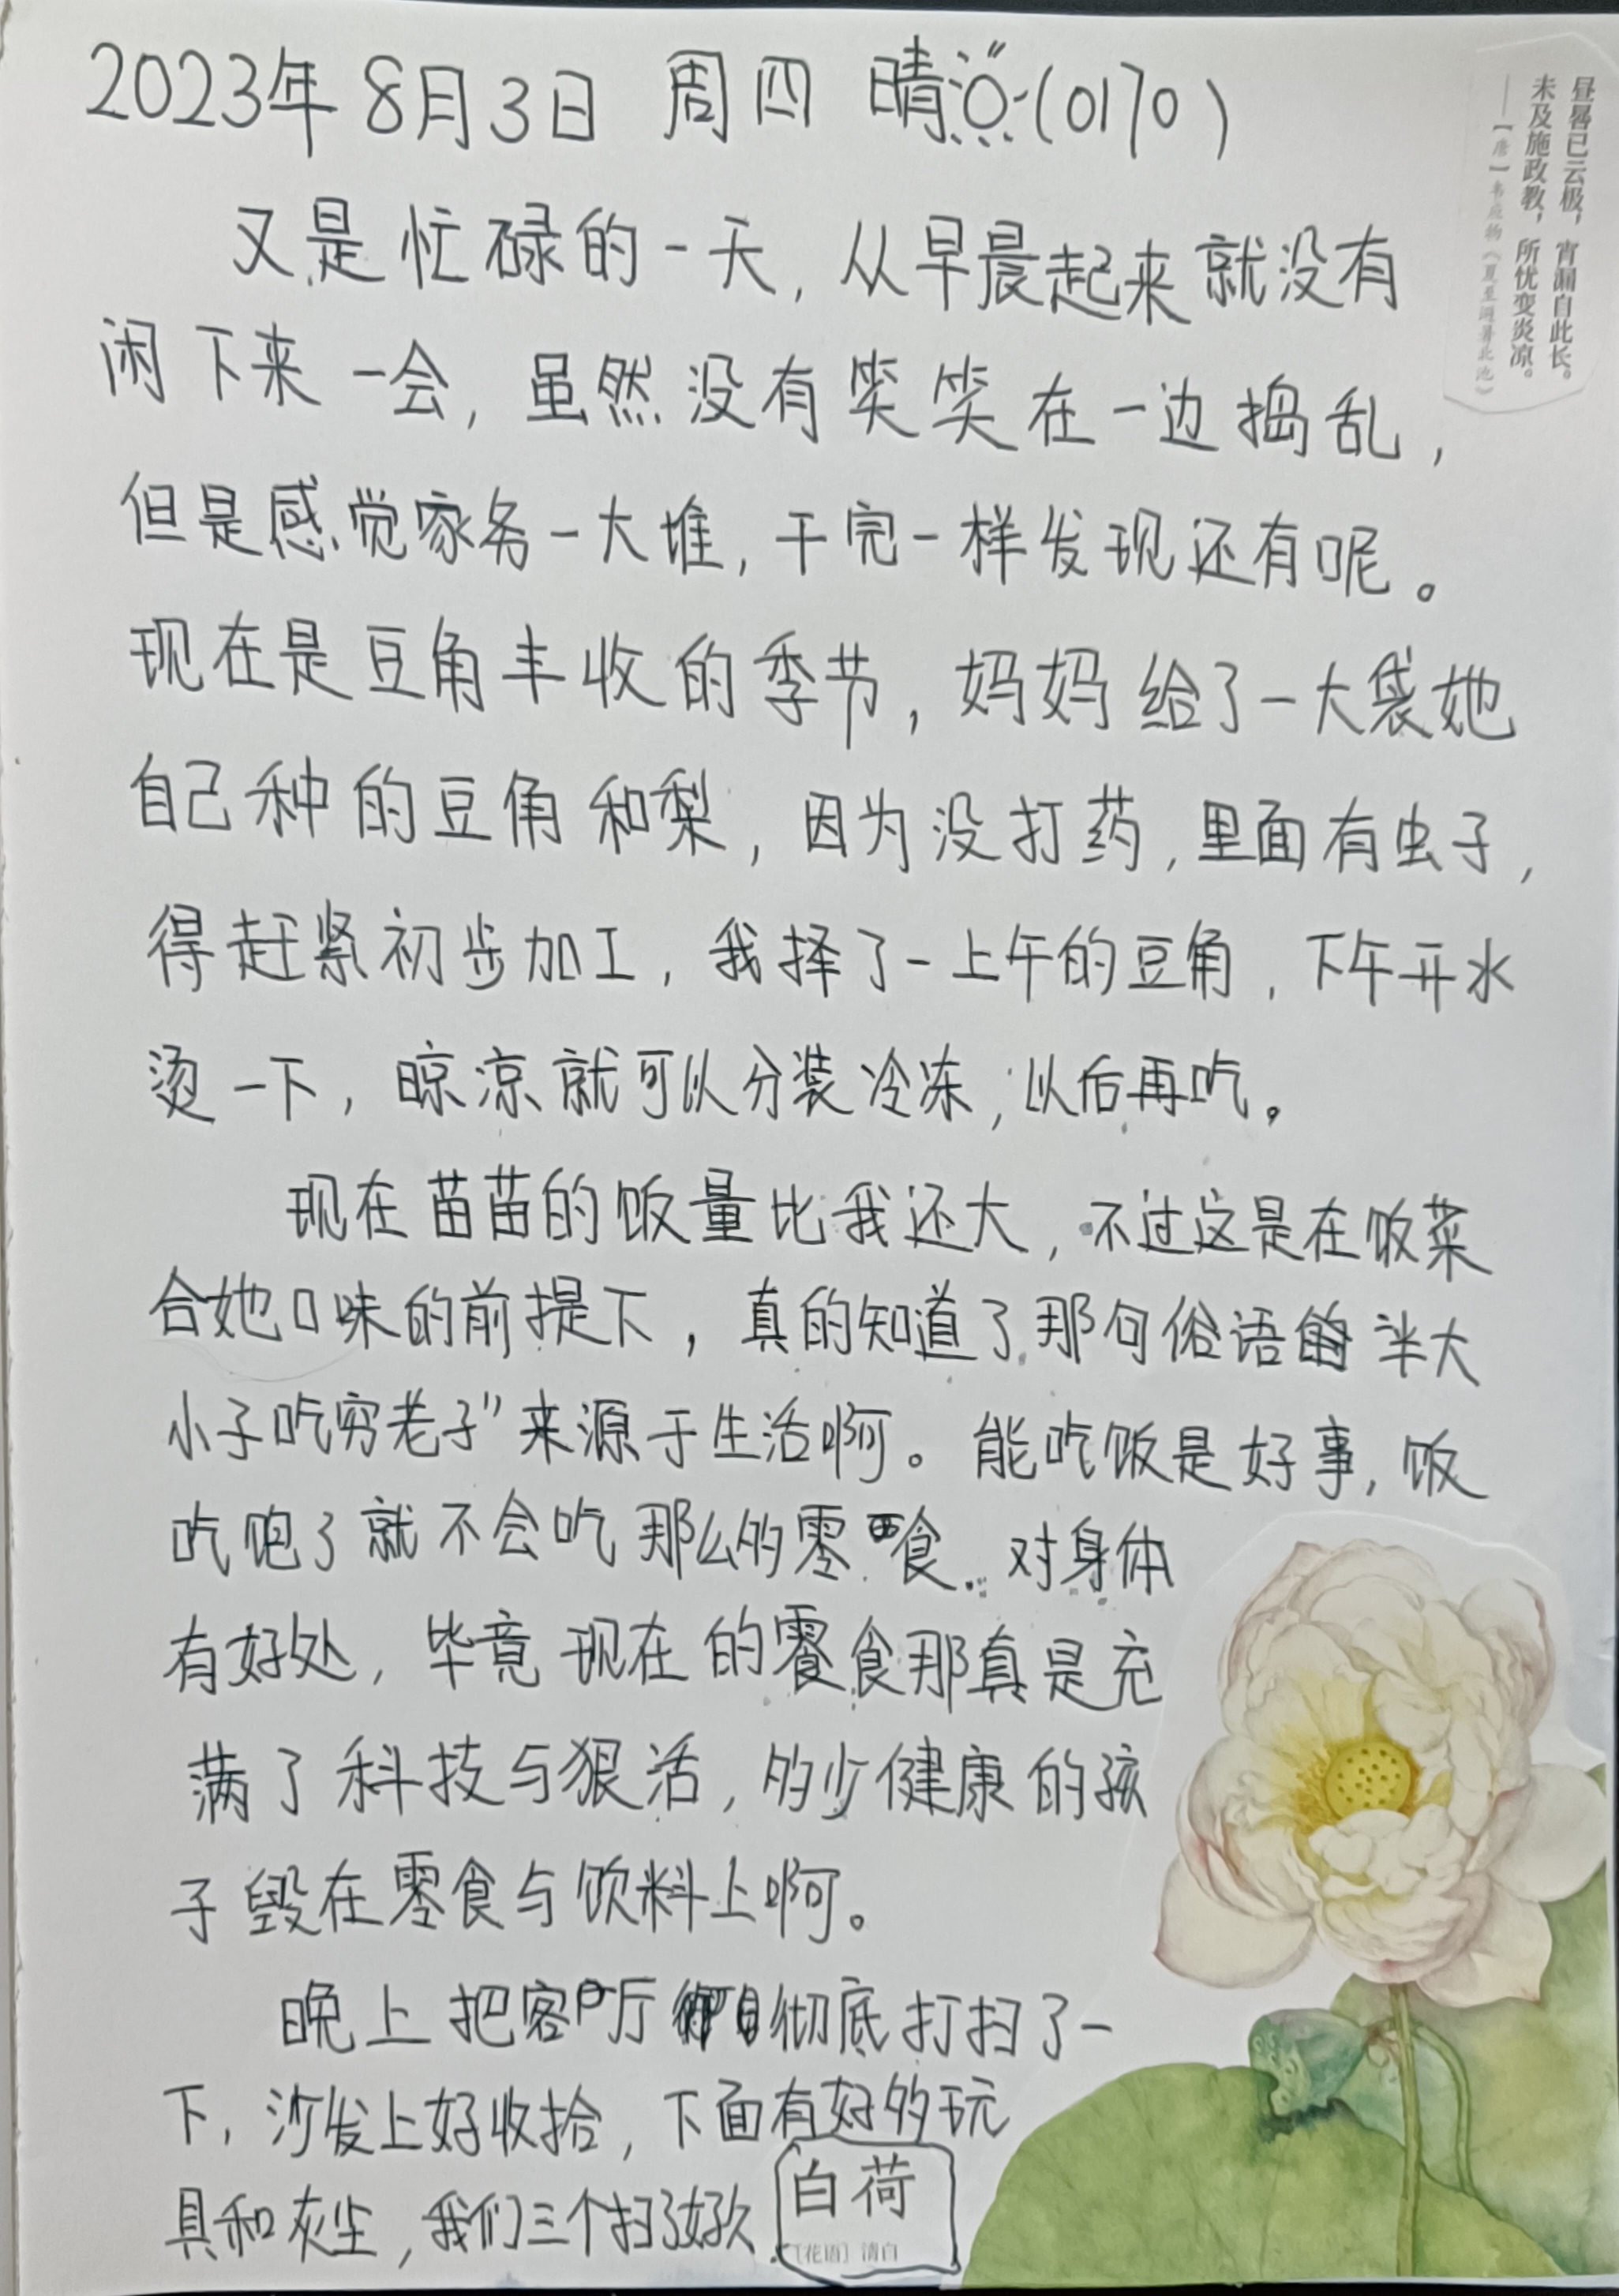 2023年8月3日 周四 晴(0170)
昼晷已云极，宵漏自此长。
未及施政教，所忧变炎凉。
——［唐］韦应物《夏至避暑北池》
又是忙碌的一天，从早晨起来就没有
闲下来一会，虽然没有笑笑在一边捣乱，
但是感觉家务一大堆，干完一样发现还有呢。
现在是豆角丰收的季节，妈妈给了一大袋她
自己种的豆角和梨，因为没打药，里面有虫子，
得赶紧初步加工，我择了一上午的豆角，下午开水
烫一下，晾凉就可以分装冷冻，以后再吃。
现在苗苗的饭量比我还大，不过这是在饭菜
合她口味的前提下，真的知道了那句俗语 半大
小子吃穷老子”来源于生活啊。能吃饭是好事，饭
吃饱了就不会吃那么多零食，对身体
有好处，毕竟现在的零食那真是充
满了科技与狠活，多少健康的孩
子毁在零食与饮料上啊。
晚上把客厅彻底打扫了一
下，沙发上好收拾，下面有好多玩
具和灰尘，我们三个扫了好久
白荷
［花语］清白